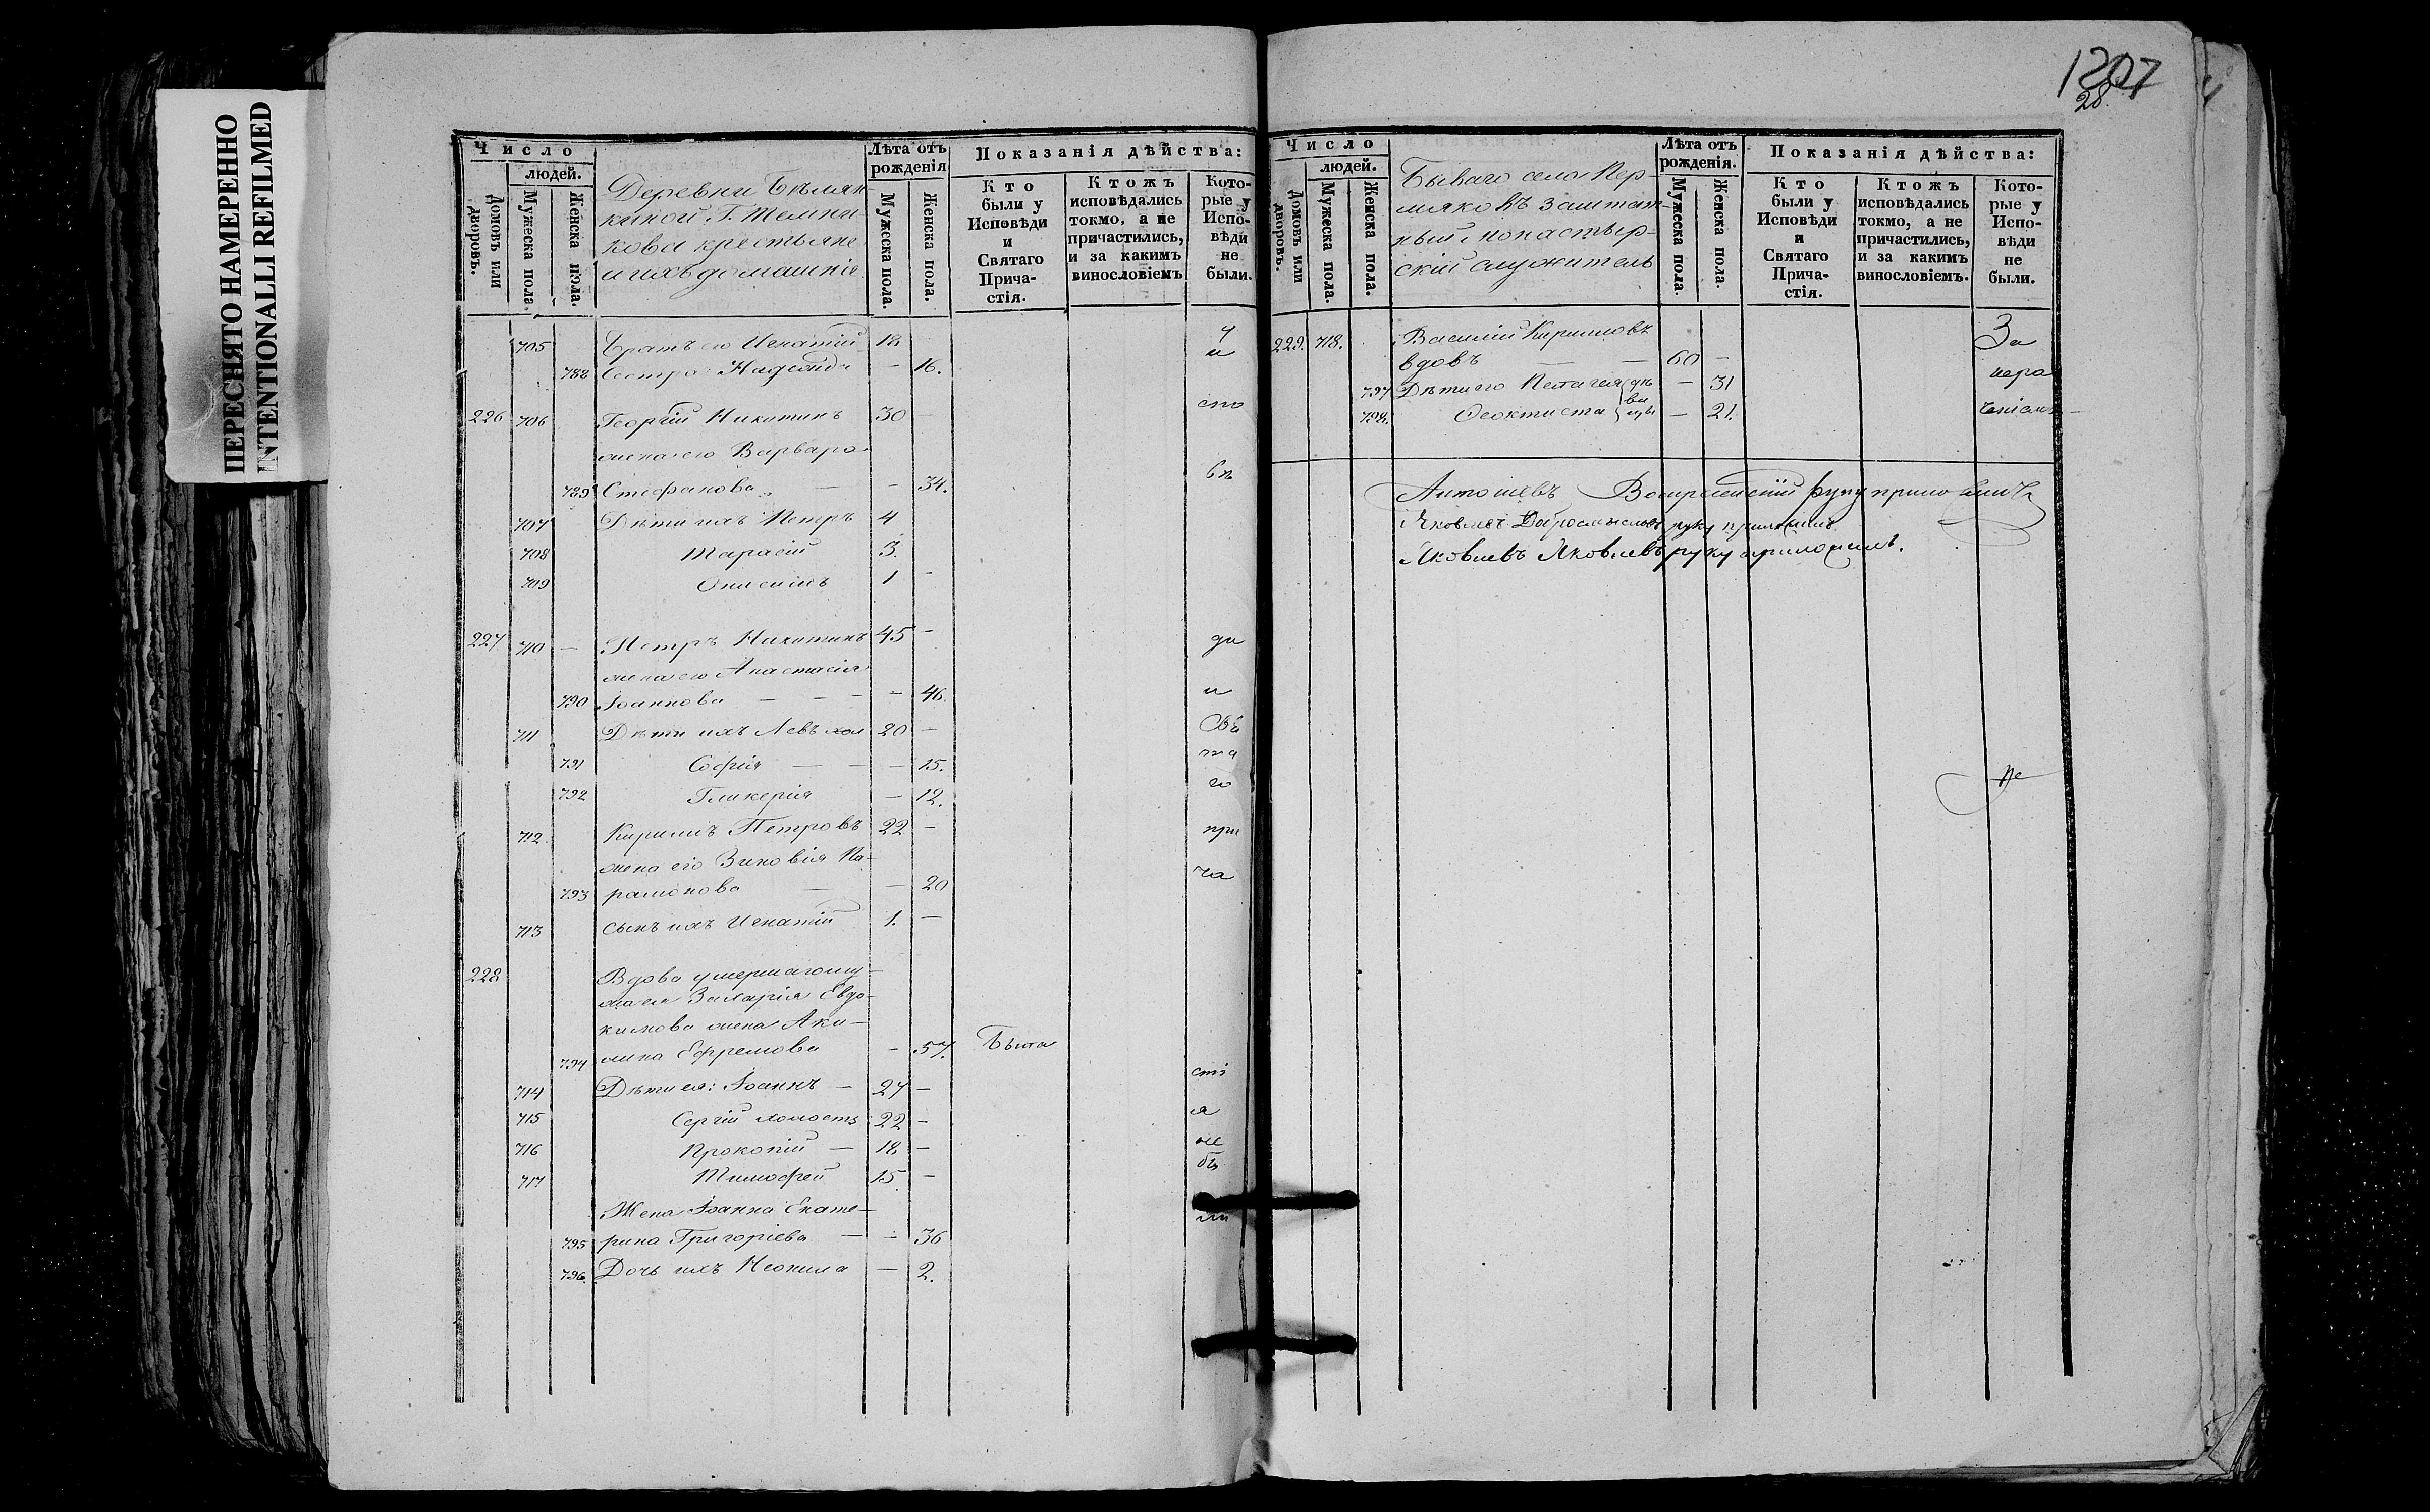 ПЕРЕСНЯТО НАМЕРЕННО
INTENTIONALLI REFILMED
Число
людей.
Домовъ или дворовъ.
Мужеска пола.
Женска пола.
Деревни
киной Г. Темни
кова крестьяне
и ихъ домашніе
Лѣта отъ рожденія
Мужеска пола.
Женска пола.
Показанія дѣйства:
Кто были у Исповѣди и Святаго Прича-стія.
Ктожъ исповѣдались токмо, а не причастились, и за какимъ винословіемъ
Кото-рые у Испо-вѣди не были.
705 Братъ его Игнатій 18
788 Сестра — 16.
226 706 Георгій Никитинъ 30 —
жена его Варвара
789 Стефанова — — 34.
707 Дѣти ихъ Петръ 4
708 Тарасій 3.
709 Онисимъ 1 —
227 710 — Петръ Никитинъ 45 —
жена его Анастасія
790 Іоаннова — — — — 46.
711 Дѣти ихъ Левъ хол 20 —
791 Софія — — — 15.
792 Гликерія — 12.
712 Кириллъ Петровъ 22 —
жена его Зиновія Па-
793 рамонова — — 20
713 сынъ ихъ Игнатій 1. —
228 Вдова умершаго му-
жа ея Захарія Евдо-
кимова жена Аки-
794 лина Ефремова — 57. Была
714 Дѣти ея: Іоаннъ — 27 —
715 Сергій холостъ 22 —
716 Прокопій — 18 —
717 Тимофей 15 —
Жена Іоанна Екате-
795 рина Григоріева — — 36
796. Дочь ихъ Неонила — 2.
у
и
спо
вѣ
ди
и
Свя
та
го
при
ча
сті
я
не
бы
ли
1207
28.
Число
людей.
Домовъ или дворовъ.
Мужеска пола.
Женска пола.
Бываго села Пер-
мяковъ заштат-
ный монастыр-
скій служитель
Лѣта отъ рожденія.
Мужеска пола.
Женска пола.
Показанія дѣйства:
Кто были у Исповѣди и Святаго Прича-стія.
Ктожъ исповѣдались токмо, а не причастились, и за какимъ винословіемъ.
Кото-рые у Испо-вѣди не были.
229. 718. Василій Кирилловъ
вдовъ — — 60 —
797 Дѣти его Пелагея дѣ — 31
798. Феоктиста ви цы — 21.
За
нера
ченіемъ
Воскресенскій руку приложилъ
Яковлевъ руку приложилъ
Яковлевъ Яковлевъ руку приложилъ.